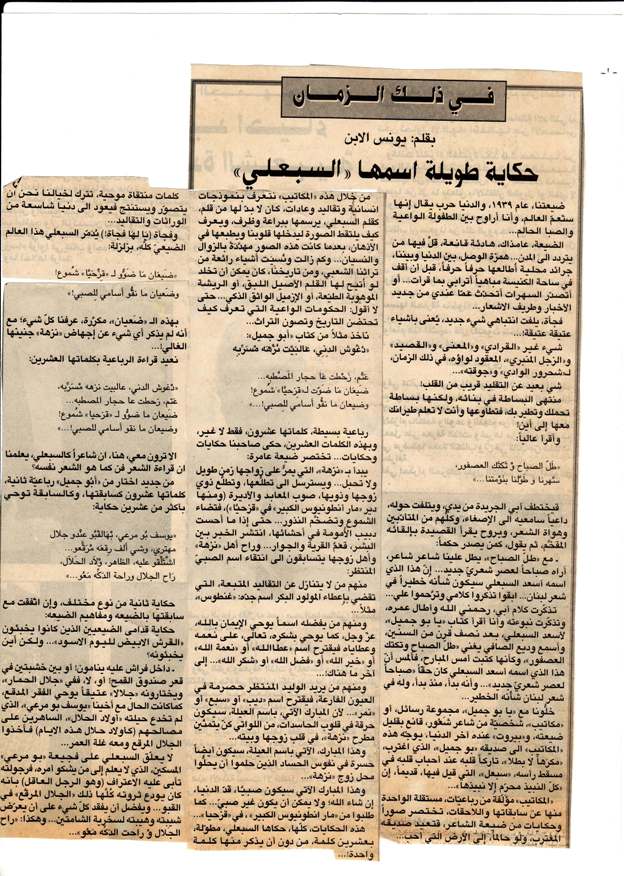 - ١ -
في ذلك الزمان
بقلم: يونس الابن
حكاية طويلة اسمها «السبعلي»
ضيعتنا، عام ١٩٣٩، والدنيا حرب يقال إنها
ستعم العالم، وأنا أراوح بين الطفولة الواعية
والصبا الحالم...
الضيعة، عامذاك، هادئة قانعة، قلّ فيها من
يتردد الى المدن... همزة الوصل، بين الدنيا وبيننا،
جرائد محلية أطالعها حرفاً حرفاً، قبل ان أقف
في ساحة الكنيسة مباهياً أترابي بما قرأت... أو
أتصدّر السهرات أتحدث عمّا عندي من جديد
الأخبار وطريف الأشعار...
فجأة، بلغت انتباهي شيء جديد، يُعنى بأشياء
عتيقة عتيقة...
شيء غير «القرادي» و«المعنى» و«القصيد»
و«الزجل المنبري»، المعقود لواؤه، في ذلك الزمان،
لـ«شحرور الوادي» و«جوقته»...
شي بعيد عن التقليد قريب من القلب!
منتهى البساطة في بنائه، ولكنها بساطة
تحملك وتطير بك، فتطاوعها وأنت لا تعلم طيرانك
معها إلى أين!
وأقرأ عالياً:
«طلّ الصباح وْ تكتك العصفور،
سْهرنا وْ طوّلنا بنَوْمتنا...»
فيختطف أبي الجريدة من يدي، ويتلفت حوله،
داعياً سامعيه الى الإصغاء، وكلّهم من المتأدبين
وهواة الشعر، ويروح يقرأ القصيدة بإلقائه
المفخّم، ثم يقول، كمن يصدر حكماً:
- مع «طلّ الصباح»، يطلّ علينا شاعر شاعر،
أراه صباحاً لعصر شعريّ جديد... إنّ هذا الذي
اسمه أسعد السبعلي سيكون شأنه خطيراً في
شعر لبنان... ابقوا تذكروا كلامي وترحّموا علي...
تذكرت كلام أبي، رحمني الله وأطال عمره،
وتذكرت نبوءته وأنا أقرأ كتاب «يا بو جميل»
لأسعد السبعلي، بعد نصف قرن من السنين،
وأسمع وديع الصافي يغني «طلّ الصباح وتكتك
العصفور»، وكأنها كتبت امس المبارح، فألمس أن
هذا الذي اسمه أسعد السبعلي كان حقّاً «صباحاً
لعصر شعريّ جديد»... وأنه بدأ، منذ بدأ، وله في
شعر لبنان شأنه الخطير.
خلّونا مع «يا بو جميل»، مجموعة رسائل، أو
«مكاتيب»، شخصيّة من شاعر شغور، قانع بقليل
ضيعته، و«بيروت» عنده آخر الدنيا، يوجّه هذه
«المكاتيب» الى صديقه «بو جميل»، الذي اغترب،
«مكرهاً لا بطلا»، تاركاً قلبه عند أحباب قلبه في
مسقط رأسه، «سبعل»، التي قيل فيها، قديماً، إن
«كلّ النبيذ محرّم إلّا نبيذها»...
«المكاتيب» مؤلفة من رباعيّات، مستقلة الواحدة
منها عن سابقاتها واللاحقات، تختصر صوراً
وحكايات من ضيعة الشاعر، فتعيد صديقه
المغترب، ولو حالماً، إلى الأرض التي أحب...
من خلال هذه «المكاتيب» نتعرف بنموذجات
إنسانية وتقاليد وعادات، كان لا بد لها من قلم،
كقلم السبعلي، يرسمها ببراعة وظرف، ويعرف
كيف يلتقط الصورة ليدخلها قلوبنا ويطبعها في
الأذهان، بعدما كانت هذه الصور مهدّدة بالزوال
والنسيان... وكم زالت ونُسيت أشياء رائعة من
تراثنا الشعبي، ومن تاريخنا، كان يمكن أن تخلد
لو أتيح لها القلم الأصيل اللبق، أو الريشة
الموهوبة الطيّعة، أو الإزميل الواثق الذكي... حتى
لا أقول: الحكومات الواعية التي تعرف كيف
تحتضن التاريخ وتصون التراث...
ناخذ مثلاً من كتاب «أبو جميل»:
«دْغوش الدني، عالبَيْت نُزْهه مْسَرّبه
عَتَم، زحطت عا حجار المصطبه...
ضيعان ما ضوّت لـ «قزحيّا» شموع!
وضيعان ما نقّو أسامي للصبي!...»
رباعية بسيطة، كلماتها عشرون، فقط لا غير،
وبهذه الكلمات العشرين، حكى صاحبنا حكايات
وحكايات... تختصر ضيعة عامرة:
يبدأ بـ«نزهة»، التي يمرّ على زواجها زمن طويل
ولا تحبل... ويسترسل الى تطلّعها، وتطلّع ذوي
زوجها وذويها، صوب المعابد والأديرة (ومنها
دير «مار انطونيوس الكبير» في «قزحيا»)، فتضاء
الشموع وتضخّم النذور... حتى إذا ما أحست
دبيب الأمومة في أحشائها، انتشر الخبر بين
البشر، فعمّ القرية والجوار... وراح أهل «نزهة»،
وأهل زوجها يتسابقون الى انتقاء اسم الصبيّ
المنتظر:
منهم من لا يتنازل عن التقاليد المتبعة، التي
تقضي بإعطاء المولود البكر اسم جدّه: «غنطوس»،
مثلاً...
ومنهم من يفضله اسماً يوحي الإيمان بالله،
عزّ وجل، كما يوحي بشكره، تعالى، على نعمه
وعطاياه فيقترح اسم «عطاالله» أو «نعمة الله»
أو «خير الله» أو «فضل الله» أو «شكر الله»... إلى
آخر ما هناك!...
ومنهم من يريد الوليد المنتظر حصرمة في
العيون الفارغة، فيقترح اسم «ديب»، أو «سبع»، أو
«نمر»... لأن المبارك الآتي، باسم العيلة، سيكون
حرقة في قلوب الحاسدات، من اللواتي كنّ يتمنّين
مطرح «نزهة»، في قلب زوجها وبيته...
وهذا المبارك، الآتي باسم العيلة، سيكون أيضاً
حسرة في نفوس الحساد الذين حلموا أن يحلّوا
محل زوج «نزهة»...
وهذا المبارك الآتي سيكون صبيّاً، قدّ الدنيا،
إن شاء الله؛ ولا يمكن أن يكون غير صبيّ... كما
طلبوا من «مار انطونيوس الكبير»، في «قزحيا»!...
هذه الحكايات، كلّها، حكاها السبعلي، مطوّلة،
بعشرين كلمة، من دون أن يذكر منها كلمة
واحدة!...
كلمات منتقاة موحية، تترك لخيالنا نحن أن
يتصوّر ويستنتج فيعود الى دنيا شاسعة من
الوراثات والتقاليد...
وفجأة (يا لها فجأة!) يُدمّر السبعلي هذا العالم
الضيعيّ كلّه، بزلزلة:
«ضيعان ما ضوّو لـ «قزحيّا» شموع!
وضيعان ما نقّو أسامي للصبي!»
بهذه الـ «ضيعان»، مكرّرة، عرفنا كلّ شيء؛ مع
أنه لم يذكر أي شيء عن إجهاض «نزهة» جنينها
الغالي!...
نعيد قراءة الرباعية بكلماتها العشرين:
«دْغوش الدني، عالبيت نزهه مْسَرّبه،
عتم، زحطت عا حجار المصطبه...
ضيعان ما ضوّت لـ «قزحيا» شموع!
وضيعان ما نقّو أسامي للصبي!...»
ألا ترون معي، هنا، ان شاعراً كالسبعلي، يعلمنا
ان قراءة الشعر فن كما هو الشعر نفسه؟
من جديد اختار من «أبو جميل» رباعية ثانية،
كلماتها عشرون كسابقتها، وكالسابقة توحي
بأكثر من عشرين حكاية:
«يوسف بو مرعي، بْهالقبو عندو جلال
مهتري، وشي ألف رقعه مْرقّعو...
اشتْلَقو عليه، الظاهر، وْلاد الحلال،
راح الجلال وراحة الدكّه مَعو»...
حكاية ثانية من نوع مختلف، وإن اتفقت مع
سابقتها بالضيعة ومفاهيم الضيعة:
حكاية قدامى الضيعيين الذين كانوا يخبئون
«القرش الابيض لليوم الاسود»... ولكن أين
يخبئونه؟
- داخل فراش عليه ينامون! أو بين خشبتين في
قعر صندوق القمح! أو، لا، ففي «جلال الحمار»،
ويختارونه «جلالا» عتيقاً يوحي الفقر المدقع،
كماكانت الحال مع أخينا «يوسف بو مرعي» الذي
لم تخدع حيلته «أولاد الحلال»، الساهرين على
مصالحهم (كأولاد حلال هذه الايام) فأخذوا
الجلال المرقع ومعه غلّة العمر...
لا يعلّق السبعلي على فجيعة «بو مرعي»،
المسكين، الذي لا يعلم إلى من يشكو أمره، فرجولته
تأبى عليه الاعتراف (وهو الرجل العاقل) بأنه
كان يودع ثروته كلّها ذلك «الجلال المرقع» في
القبو... ويفضل أن يفقد كلّ شيء على أن يعرّض
شيبته وهيبته لسخرية الشامتين... وهكذا: «راح
الجلال وْ راحت الدكّه مَعو»...